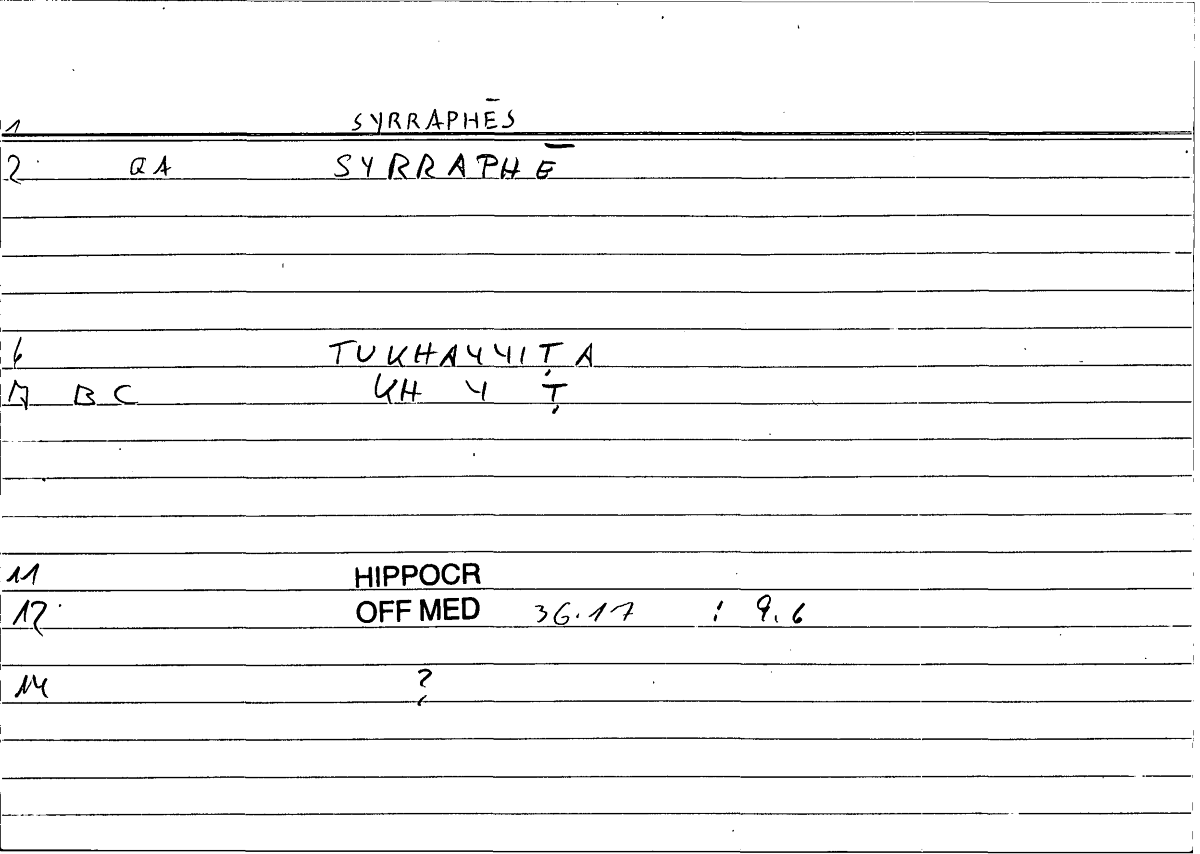 1 SYRRAPHĒS
2 QA SYRRAPHĒ
6 TUKHAYYIṬA
7 BC KH Y Ṭ
11 HIPPOCR
12 OFF MED 36.17 : 9.6
14 ?